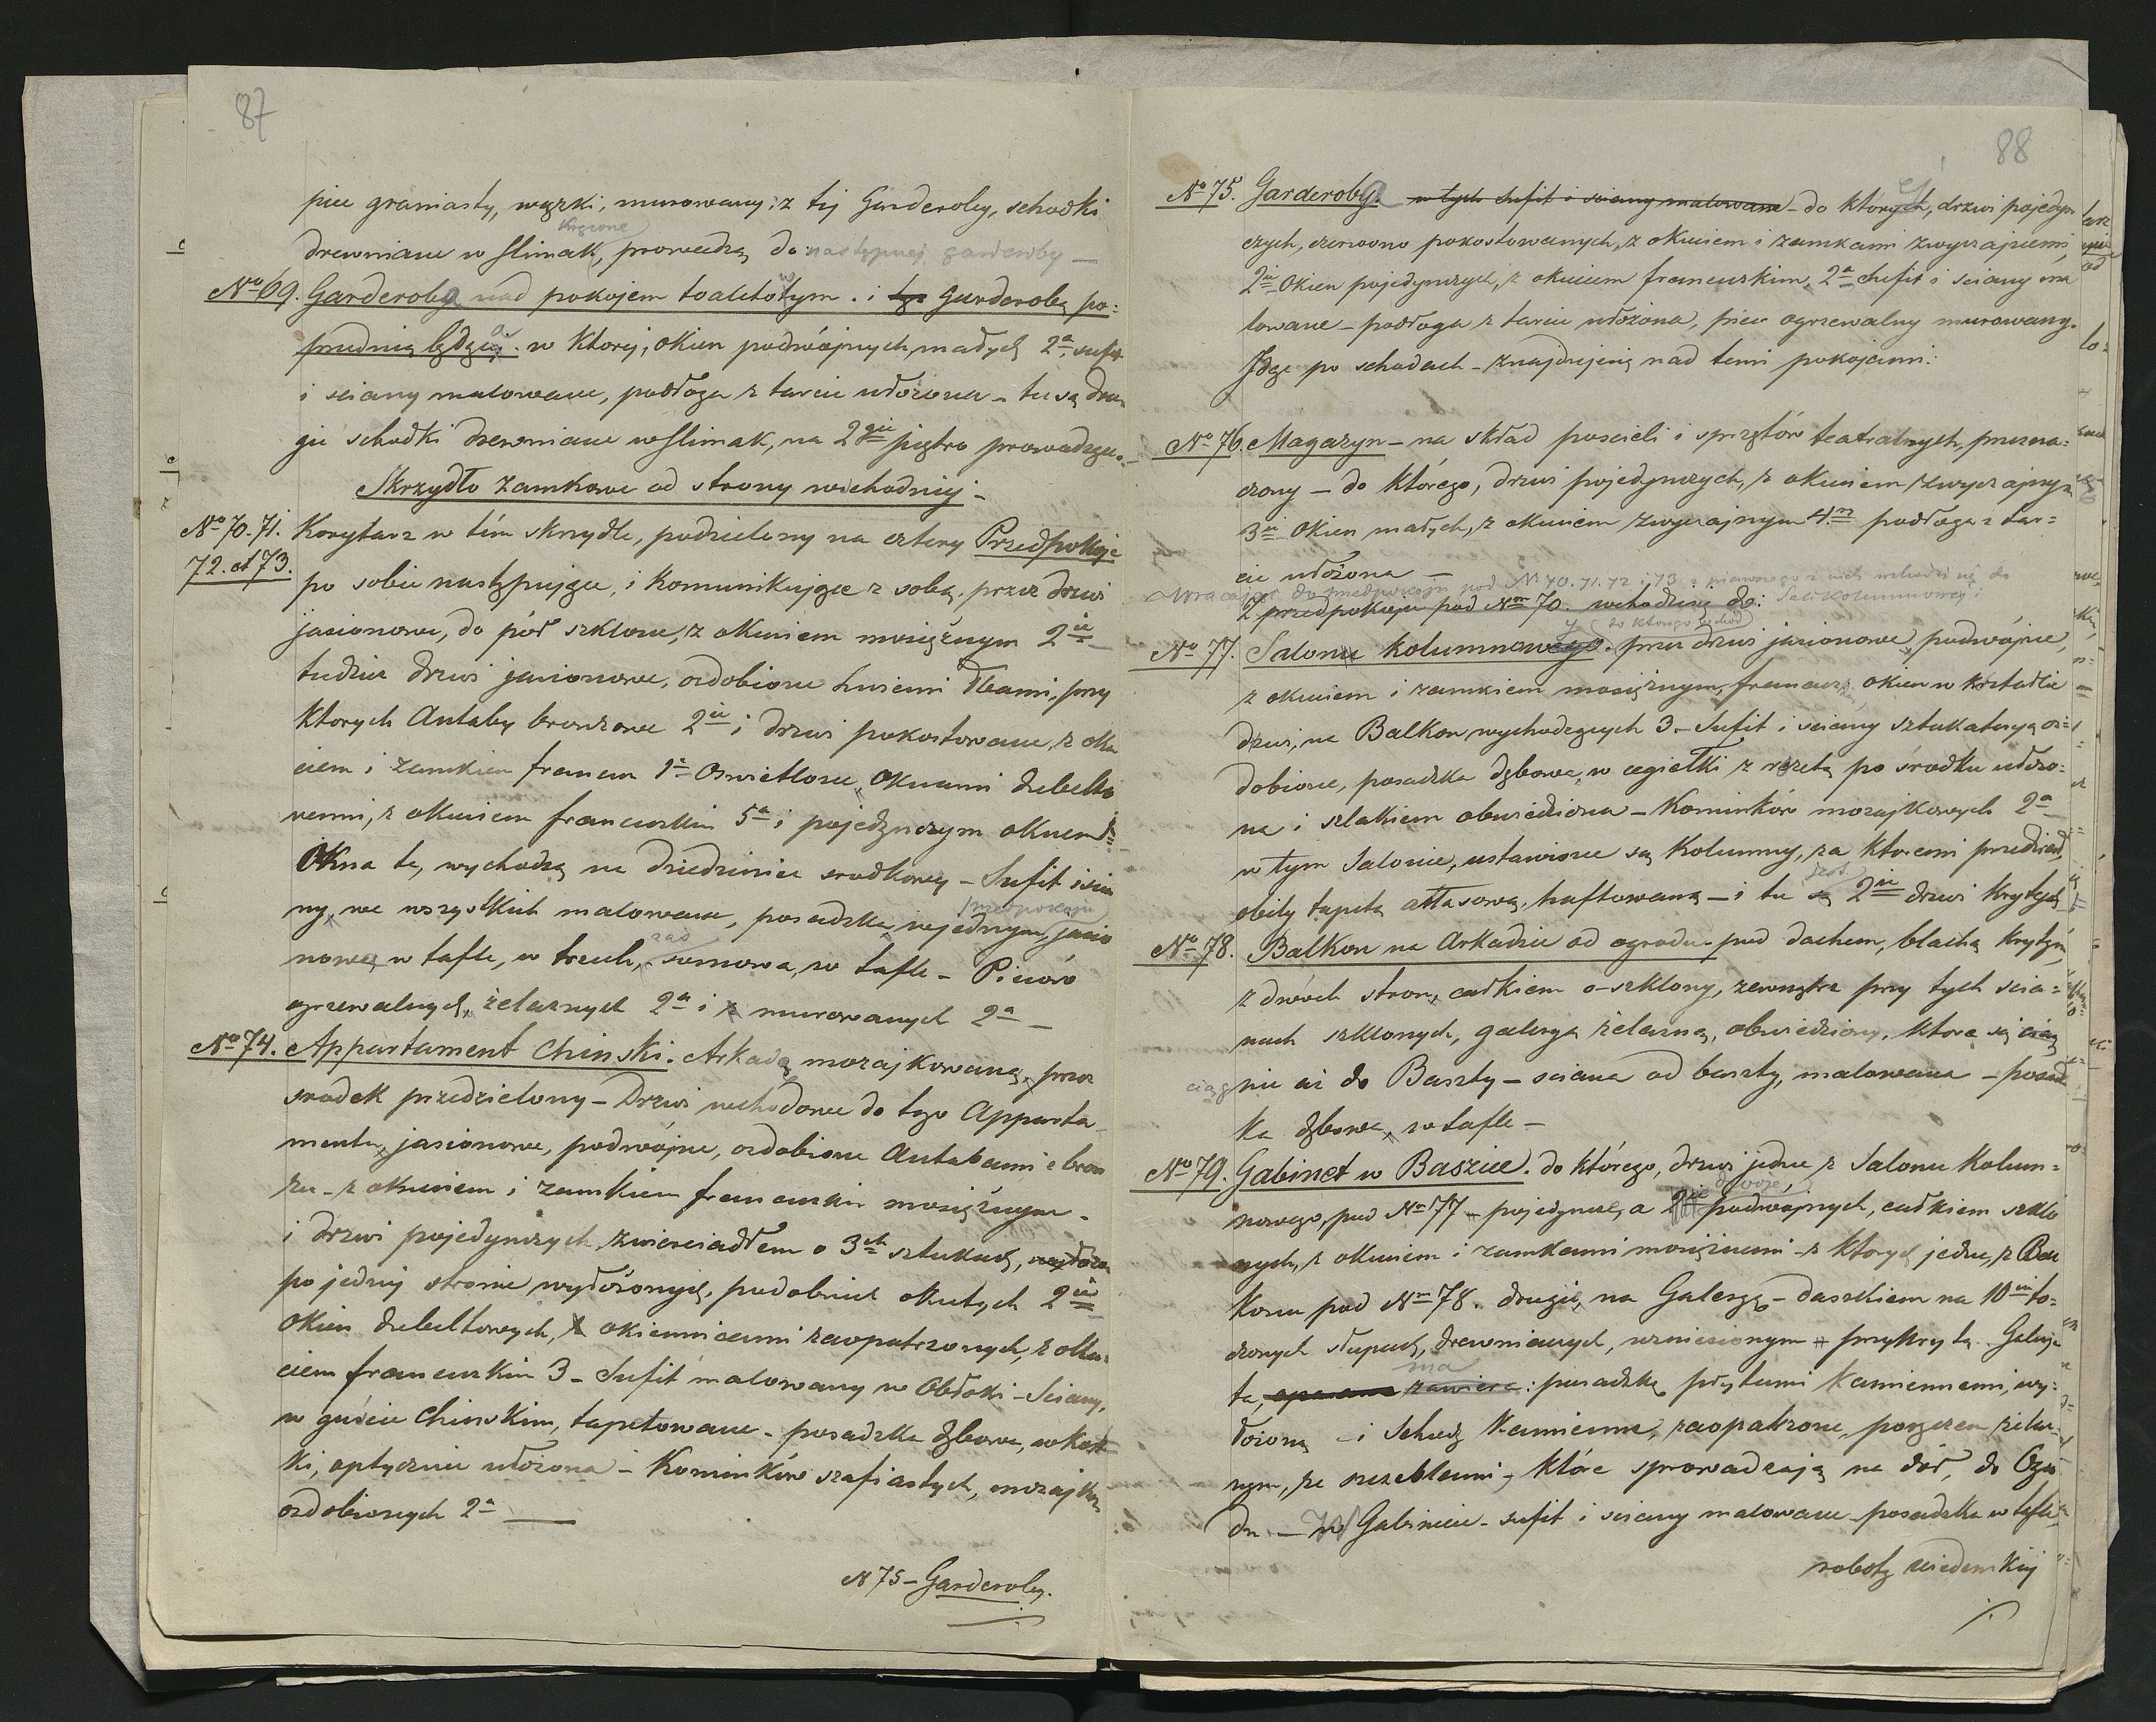 87
piec graniasty, wązki, murowany; z tej Garderoby, schodki
kręcone
drewniane w slimak, prowadzą do następnej garderoby —
No 69. Garderoba nad pokojem toaletowym. i Garderobą po=
przednią będąca. w ktorej, okien podwójnych małych 2a, sufit
i sciany malowane, podłoga z tarcic ułożona – tu są dru
gie schodki drewniane w slimak, na 2gie piętro prowadzące.
Skrzydło zamkowe od strony wschodniej –
No 70. 71. Korytarz w tém skrzydle, podzielony na cztery Przedpokoje
72. et 73. po sobie następujące, i komunikujące z sobą, przez drzwi
jasionowe, do pół szklone, z okuciem mosiężnym 2ie
tudzież drzwi jasionowe, ozdobione lwiemi łbami, przy
ktorych Antaby bronzowe 2ie i drzwi pokostowane, z oku
ciem i zamkiem francus 1e Oswietlone Oknami dubelto
wemi, z okuciem francuskim 5a i pojedynczym oknem 1.
Okna te, wychodzą na dziedziniec srodkowy – Sufit i scia
ny, we wszystkich malowane, posadzka, w jednym, jasio
przedpokoju
nowa w tafle, w trzech, zaś sosnowa, w tafle – Pieców
ogrzewalnych, żelaznych 2a i murowanych 2a —
No 74. Appartament Chinski. Arkadą mozajkowaną, przez
srodek przedzielony – Drzwi wchodowe do tego Apparta
mentu, jasionowe, podwójne, ozdobione Antabami z bron
zu – z okuciem i zamkiem francuskim mosiężnym –
i drzwi pojedynczych, zwierciadłem o 3ch sztukach,
po jednej stronie wyłożonych, podobnież okutych 2ie
Okien dubeltowych, okiennicami zaopatrzonych, z oku
ciem francuskim 3 – Sufit malowany w Obłoki – Sciany,
w guście Chinskim, tapetowane – posadzka dębowa, w kost
ki, optycznie ułożona – Kominków szafiastych, mozajką
ozdobionych 2a —
N 75 – Garderoby.
88
No 75. Garderoba w tych sufit i sciany malowane – do której, drzwi pojedyn
czych, czerwono pokostowanych, z okuciem i zamkami zwyczajnemi,
2ie Okien pojedynczych, z okuciem francuskim, 2a Sufit i sciany ma
lowane – podłoga z tarcic ułożona, piec ogrzewalny murowany.
Idąc po schodach – znajduje się nad temi pokojami:
No 76. Magazyn – na skład poscieli i sprzętów teatralnych, przezna=
czony – do którego, drzwi pojedynczych, z okuciem zwyczajnym
3ie Okien małych, z okuciem zwyczajnym 4. podłoga z tar=
cic ułożona —
Wracając do przedpokoju pod No 70. 71. 72 i 73 z pierwszego z nich wchodzi się do Sali kolumnowej
Z przedpokoju pod Nm 70. wchodzi się do:
do którego wchód
No 77. Salonu kolumnowego. przez drzwi jasionowe, podwójne,
z okuciem i zamkiem mosiężnym, francuz. okien w kształcie
drzwi, na Balkon wychodzących 3 – Sufit i sciany sztukateryą oz=
dobione, posadzka dębowa, w cegiełki z rozetą po środku ułożo=
na i szlakiem obwiedziona – Kominków mozajkowych 2a
w tym Salonie, ustawione są Kolumny, za ktoremi przedział,
jest
obity tapetą atłasową, haftowaną – i tu są 2ie drzwi krytych
No 78. Balkon na Arkadzie od ogrodu – pod dachem, blachą krytym,
z dwóch stron, całkiem o-szklony, zewnątrz przy tych scia=
nach szklonych, galerya żelazna, obwiedziony, ktora się ciąg
nie aż do Baszty – sciana od baszty, malowana – posadz
ciąg
ka dębowa, w tafle –
No 79. Gabinet w Baszcie. do którego, drzwi jedne z Salonu Kolum=
dwoje
nowego, pod No 77 – pojedyncze, a 2ie podwójnych, całkiem szklo
nych, z okuciem i zamkami mosiężnemi – z ktorych jedne, z Bal
konu pod Nm 78. drugie, na Galeryę – daszkiem na 10iu to=
czonych słupach, drewnianych, wzniesionym przykrytą. Galerya
ma
ta, zawiera: posadzkę płytami kamiennemi, wy=
łożoną – i Schody kamienne, zaopatrzone, poręczem żela=
znym, ze szczeblami, które sprowadzają na dół, do Ogro
du – W Gabinecie – sufit i sciany malowane – posadzka w tafle
roboty wiedenskiej